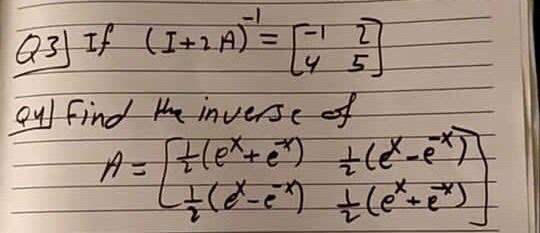 Q3] If (I+2A)⁻¹ = [-1 2
4 5]
Q4] Find the inverse of
A = [½(eˣ+e⁻ˣ) ½(eˣ-e⁻ˣ)
½(eˣ-e⁻ˣ) ½(eˣ+e⁻ˣ)]